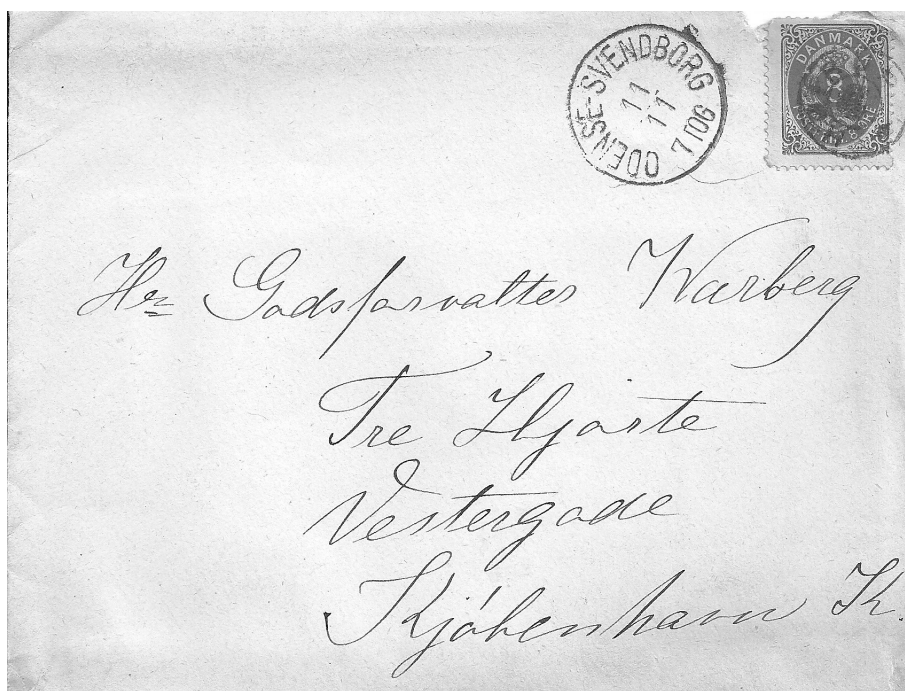 ODENSE-SVENDBORG
11
11
7 TOG
DANMARK
8
POSTFRIM. 8 ØRE
Hr Godsforvalter Warberg
Tre Hjorte
Vestergade
Kjóbenhavn K.